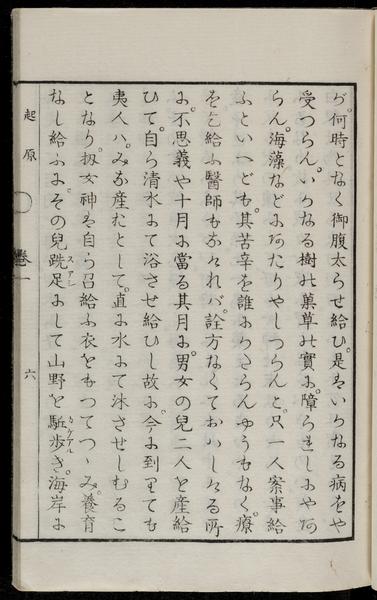 が何時となく御腹太らせ給ひ。是はいかなる病をや
受つらん。いかなる樹の菓草の實に。障られしにやあ
らん。海藻などにあたりやしつらんと。只一人案事給
ふといへども。其苦辛を誰にかさらんやうもなく。療
を乞給ふ醫師もなけれバ。詮方なくておハしける所
に。不思義や十月に當る其月に。男女の兒二人を産給
ひて。自ら清水にて浴させ給ひし故に。今に到りても
夷人ハ。みな産たとして。直に水にて沐させしむるこ
となり。扨女神は自ら召給ふ衣をもつてつゝみ。養育
なし給ふに。その兒跣足にして山野を駈歩き。海岸に
スアシ
カケアル
起原
卷一
六